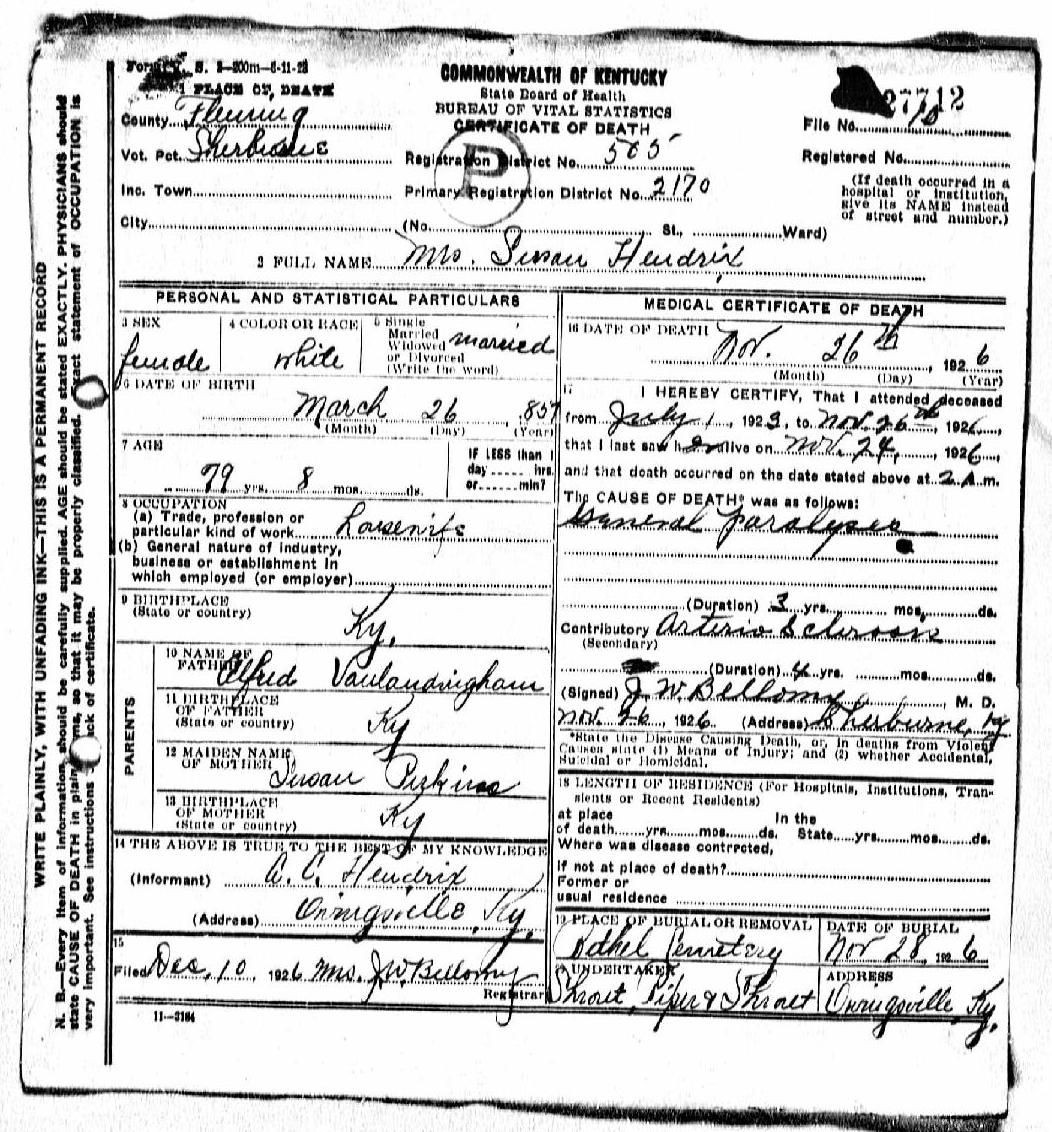 Form V. S. 1-200m-6-11-23
1 PLACE OF DEATH
County Fleming
Vot. Pct. Sherburne
Inc. Town
City
COMMONWEALTH OF KENTUCKY
State Board of Health
BUREAU OF VITAL STATISTICS
CERTIFICATE OF DEATH
P
Registration District No. 505
Primary Registration District No. 2170
(No. St., Ward)
27712
File No.
Registered No.
(If death occurred in a
hospital or institution,
give its NAME instead
of street and number.)
2 FULL NAME Mrs. Susan Hendrix
PERSONAL AND STATISTICAL PARTICULARS
3 SEX
female
4 COLOR OR RACE
white
5 Single
Married
Widowed
or Divorced
(Write the word)
married
6 DATE OF BIRTH
March 26 857
(Month) (Day) (Year)
7 AGE
79 yrs. 8 mos. ds.
IF LESS than 1
day hrs.
or min?
8 OCCUPATION
(a) Trade, profession or
particular kind of work housewife
(b) General nature of industry,
business or establishment in
which employed (or employer)
9 BIRTHPLACE
(State or country)
Ky.
PARENTS
10 NAME OF
FATHER Alfred Vanlandingham
11 BIRTHPLACE
OF FATHER
(State or country) Ky
12 MAIDEN NAME
OF MOTHER Susan Perkins
13 BIRTHPLACE
OF MOTHER
(State or country) Ky
14 THE ABOVE IS TRUE TO THE BEST OF MY KNOWLEDGE
(Informant) A. C. Hendrix
(Address) Owingsville, Ky.
15
Filed Dec. 10, 1926 Mrs. J W Bellomy
Registrar
11—3184
MEDICAL CERTIFICATE OF DEATH
16 DATE OF DEATH
Nov. 26th, 1926
(Month) (Day) (Year)
17
I HEREBY CERTIFY, That I attended deceased
from July 1, 1923, to Nov. 26th, 1926,
that I last saw her alive on Nov. 24, 1926,
and that death occurred on the date stated above at 2 A.m.
The CAUSE OF DEATH* was as follows:
General paralyses
(Duration) 3 yrs. mos. ds.
Contributory Arterio Sclerosis
(Secondary)
(Duration) 4 yrs. mos. ds.
(Signed) J. W. Bellomy, M. D.
Nov. 26, 1926 (Address) Sherburne, Ky
*State the Disease Causing Death, or, in deaths from Violent
Causes state (1) Means of Injury; and (2) whether Accidental,
Suicidal or Homicidal.
18 LENGTH OF RESIDENCE (For Hospitals, Institutions, Tran-
sients or Recent Residents)
at place In the
of death yrs. mos. ds. State yrs. mos. ds.
Where was disease contrected,
if not at place of death?
Former or
usual residence
19 PLACE OF BURIAL OR REMOVAL
Bethel Cemetery
DATE OF BURIAL
Nov 28, 1926
20 UNDERTAKER
Shrout, Piper & Shrout
ADDRESS
Owingsville, Ky.
WRITE PLAINLY, WITH UNFADING INK—THIS IS A PERMANENT RECORD
N. B.—Every item of information should be carefully supplied. AGE should be stated EXACTLY. PHYSICIANS should
state CAUSE OF DEATH in plain terms, so that it may be properly classified. Exact statement of OCCUPATION is
very important. See instructions back of certificate.